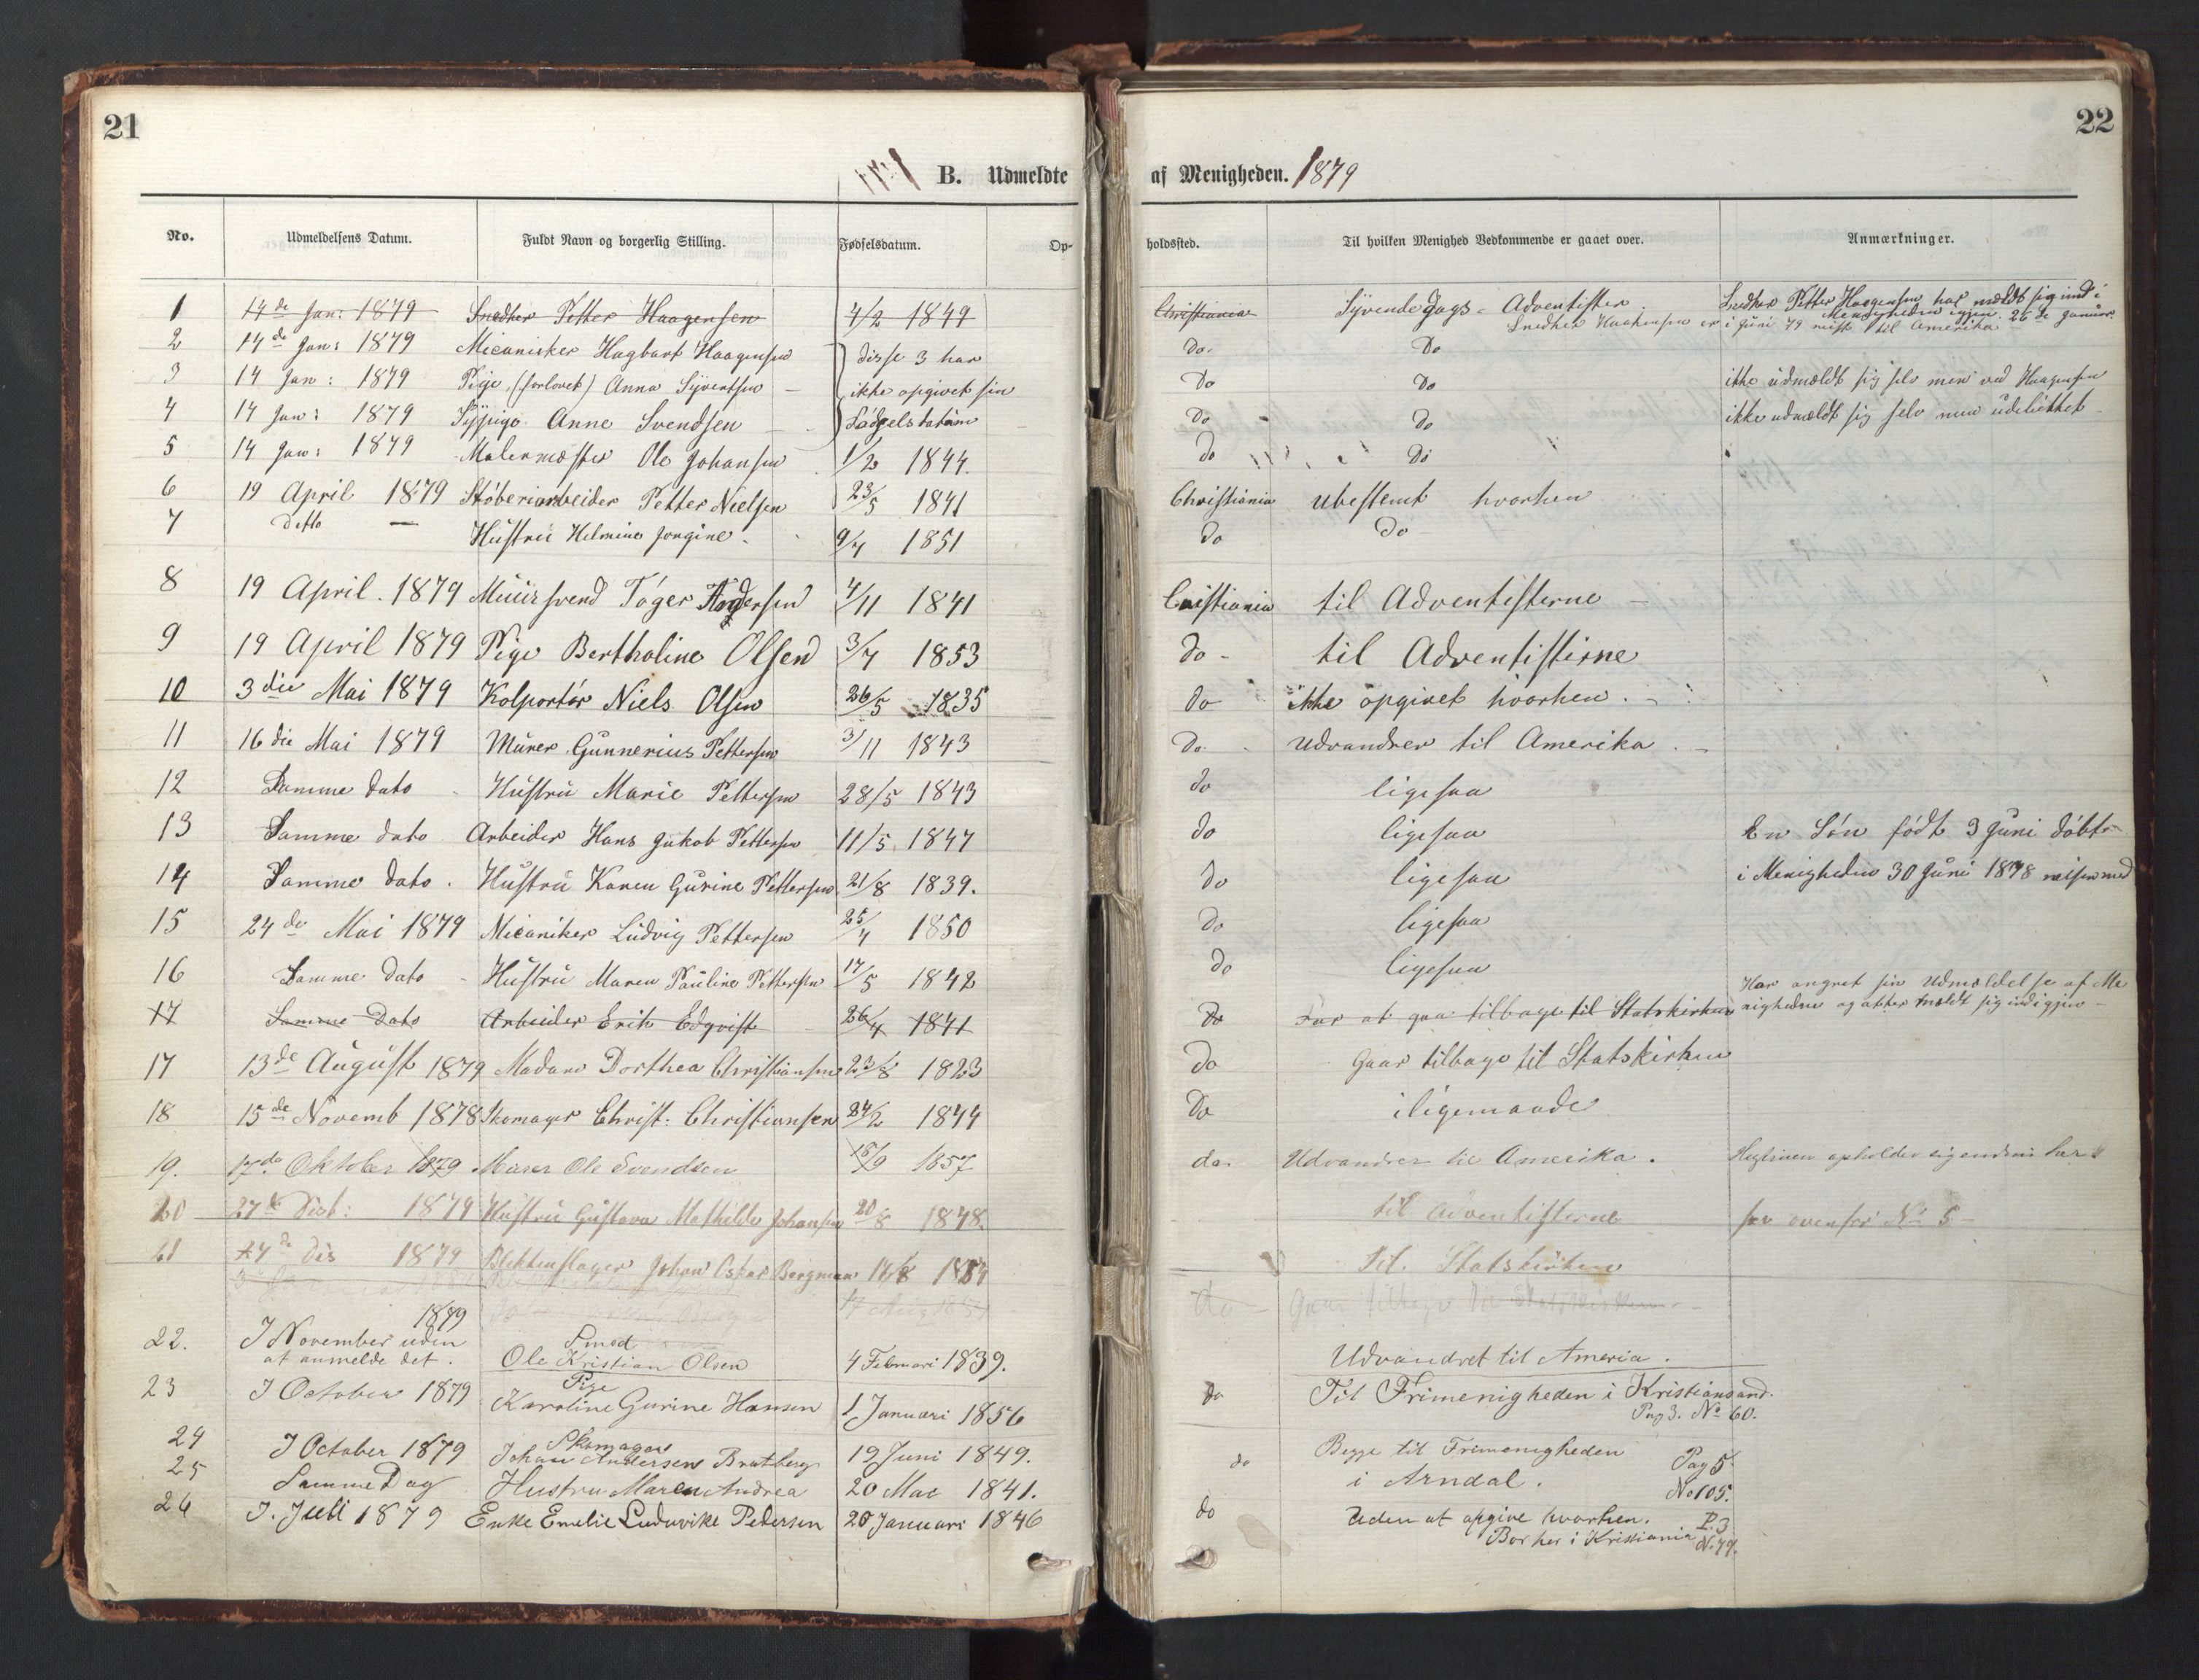 21
22
B. Udmeldte af Menigheden. 1879
No. Udmeldelsens Datum. Fuldt Navn og borgerlig Stilling. Fødselsdatum. Opholdssted. Til hvilken Menighed Vedkommende er gaaet over. Anmærkninger.
1 14de Jan: 1879 Snedker Petter Haagensen 4/2 1849 Christiania Syvende Dags-Adventister. Snedker Petter Haagensen har meldt sig ind i
Menigheden igjen 26de Januar
Snedker Haakensen er i Juni 79 reist til Amerika
2 14de Jan: 1879 Micanisker Hagbart Haagensen disse 3 har Do. Do
3 14 Jan: 1879 Pige (forlovet) Anna Syvertsen ikke opgivet sin Do Do ikke udmeldt sig selv men ved Haagensen
4 14 Jan: 1879 Sypige Anne Svendsen Fødselsdatum Do Do ikke udmeldt sig selv men udeblittet
5 14 Jan: 1879 Malermester Ole Johansen 1/2 1844. do Do
6 19 April 1879 Støberiarbeider Petter Nielsen 23/5 1841 Christiania ubestemt hvorhen
7 ditto — Hustru Helmine Jorgine 9/7 1851 Do Do
8 19 April. 1879 Muursvend Tøger Andersen 4/11 1841 Cristiania til Adventisterne
9 19 April 1879 Pige Bertholine Olsen 3/7 1853 do til Adventisterne
10 3die Mai 1879 Kolportør Niels Olsen 26/5 1835 do ikke opgivet hvorhen.
11 16die Mai 1879 Murer Gunnerius Pettersen 3/11 1843 Do. Udvandrer til Amerika.
12 Samme dato Hustru Marie Pettersen 28/5 1843 do ligesaa
13 Samme dato Arbeider Hans Jakob Pettersen 11/5 1847 do ligesaa En Søn født 3 Juni døbt
14 Samme dato. Hustru Karen Gurine Pettersen 21/8 1839. do ligesaa i Menigheden 30 Juni 1878 reiser med
15 24de Mai 1879 Micaniker Ludvig Pettersen 25/4 1850 do ligesaa
16 Samme dato Hustru Maren Pauline Pettersen 17/5 1842 do ligesaa
Har angret sin Udmeldelse af Me
17 Samme Dato Arbeider Erik Edqvist 26/4 1841 Do For at gaa tilbage til Statskirken nigheden og atter meldt sig ind igjen
17 13de August 1879 Madam Dorthea Christiansen 23/8 1823 do Gaar tilbage til Statskirken
18 15de Novemb 1878 Skomager Christ: Christiansen 24/2 1844 Do i ligemaade
19. 17de Oktober 1879 Murer Ole Svendsen 15/9 1857 do. Udvandrer til Amerika. Hustruen opholder sig endnu her
20 27de Dist: 1879 Hustru Gustava Mathilde Johansen 20/8 1848. til Adventisterne se ovenfor No 5
21 1879 Blikkenslager Johan Oskar Bergman Til. Statskirken
do Gaar tilbage til Statskirken
22. 1879
I November uden
at anmelde det. Smed
Ole Kristian Olsen 4 Februari 1839. Udvandret til Ameria.
23 I October 1879 Pige
Karoline Gurine Hansen 1 Januari 1856 do Til Frimenigheden i Kristiansand.
Pag 3. No 60.
24 I October 1879 Skomager
Johan Andersen Bratberg 19 Juni 1849. do Begge til Frimenigheden Pag 5
25 Samme Dag Hustru Maren Andrea 20 Mai 1841. i Arndal. No 105.
26 I. Juli 1879 Enke Emelie Luduvike Pedersen 20 Januari 1846 do Uden at opgive hvorhen. P. 3
Bor her i Kristiania N. 77.